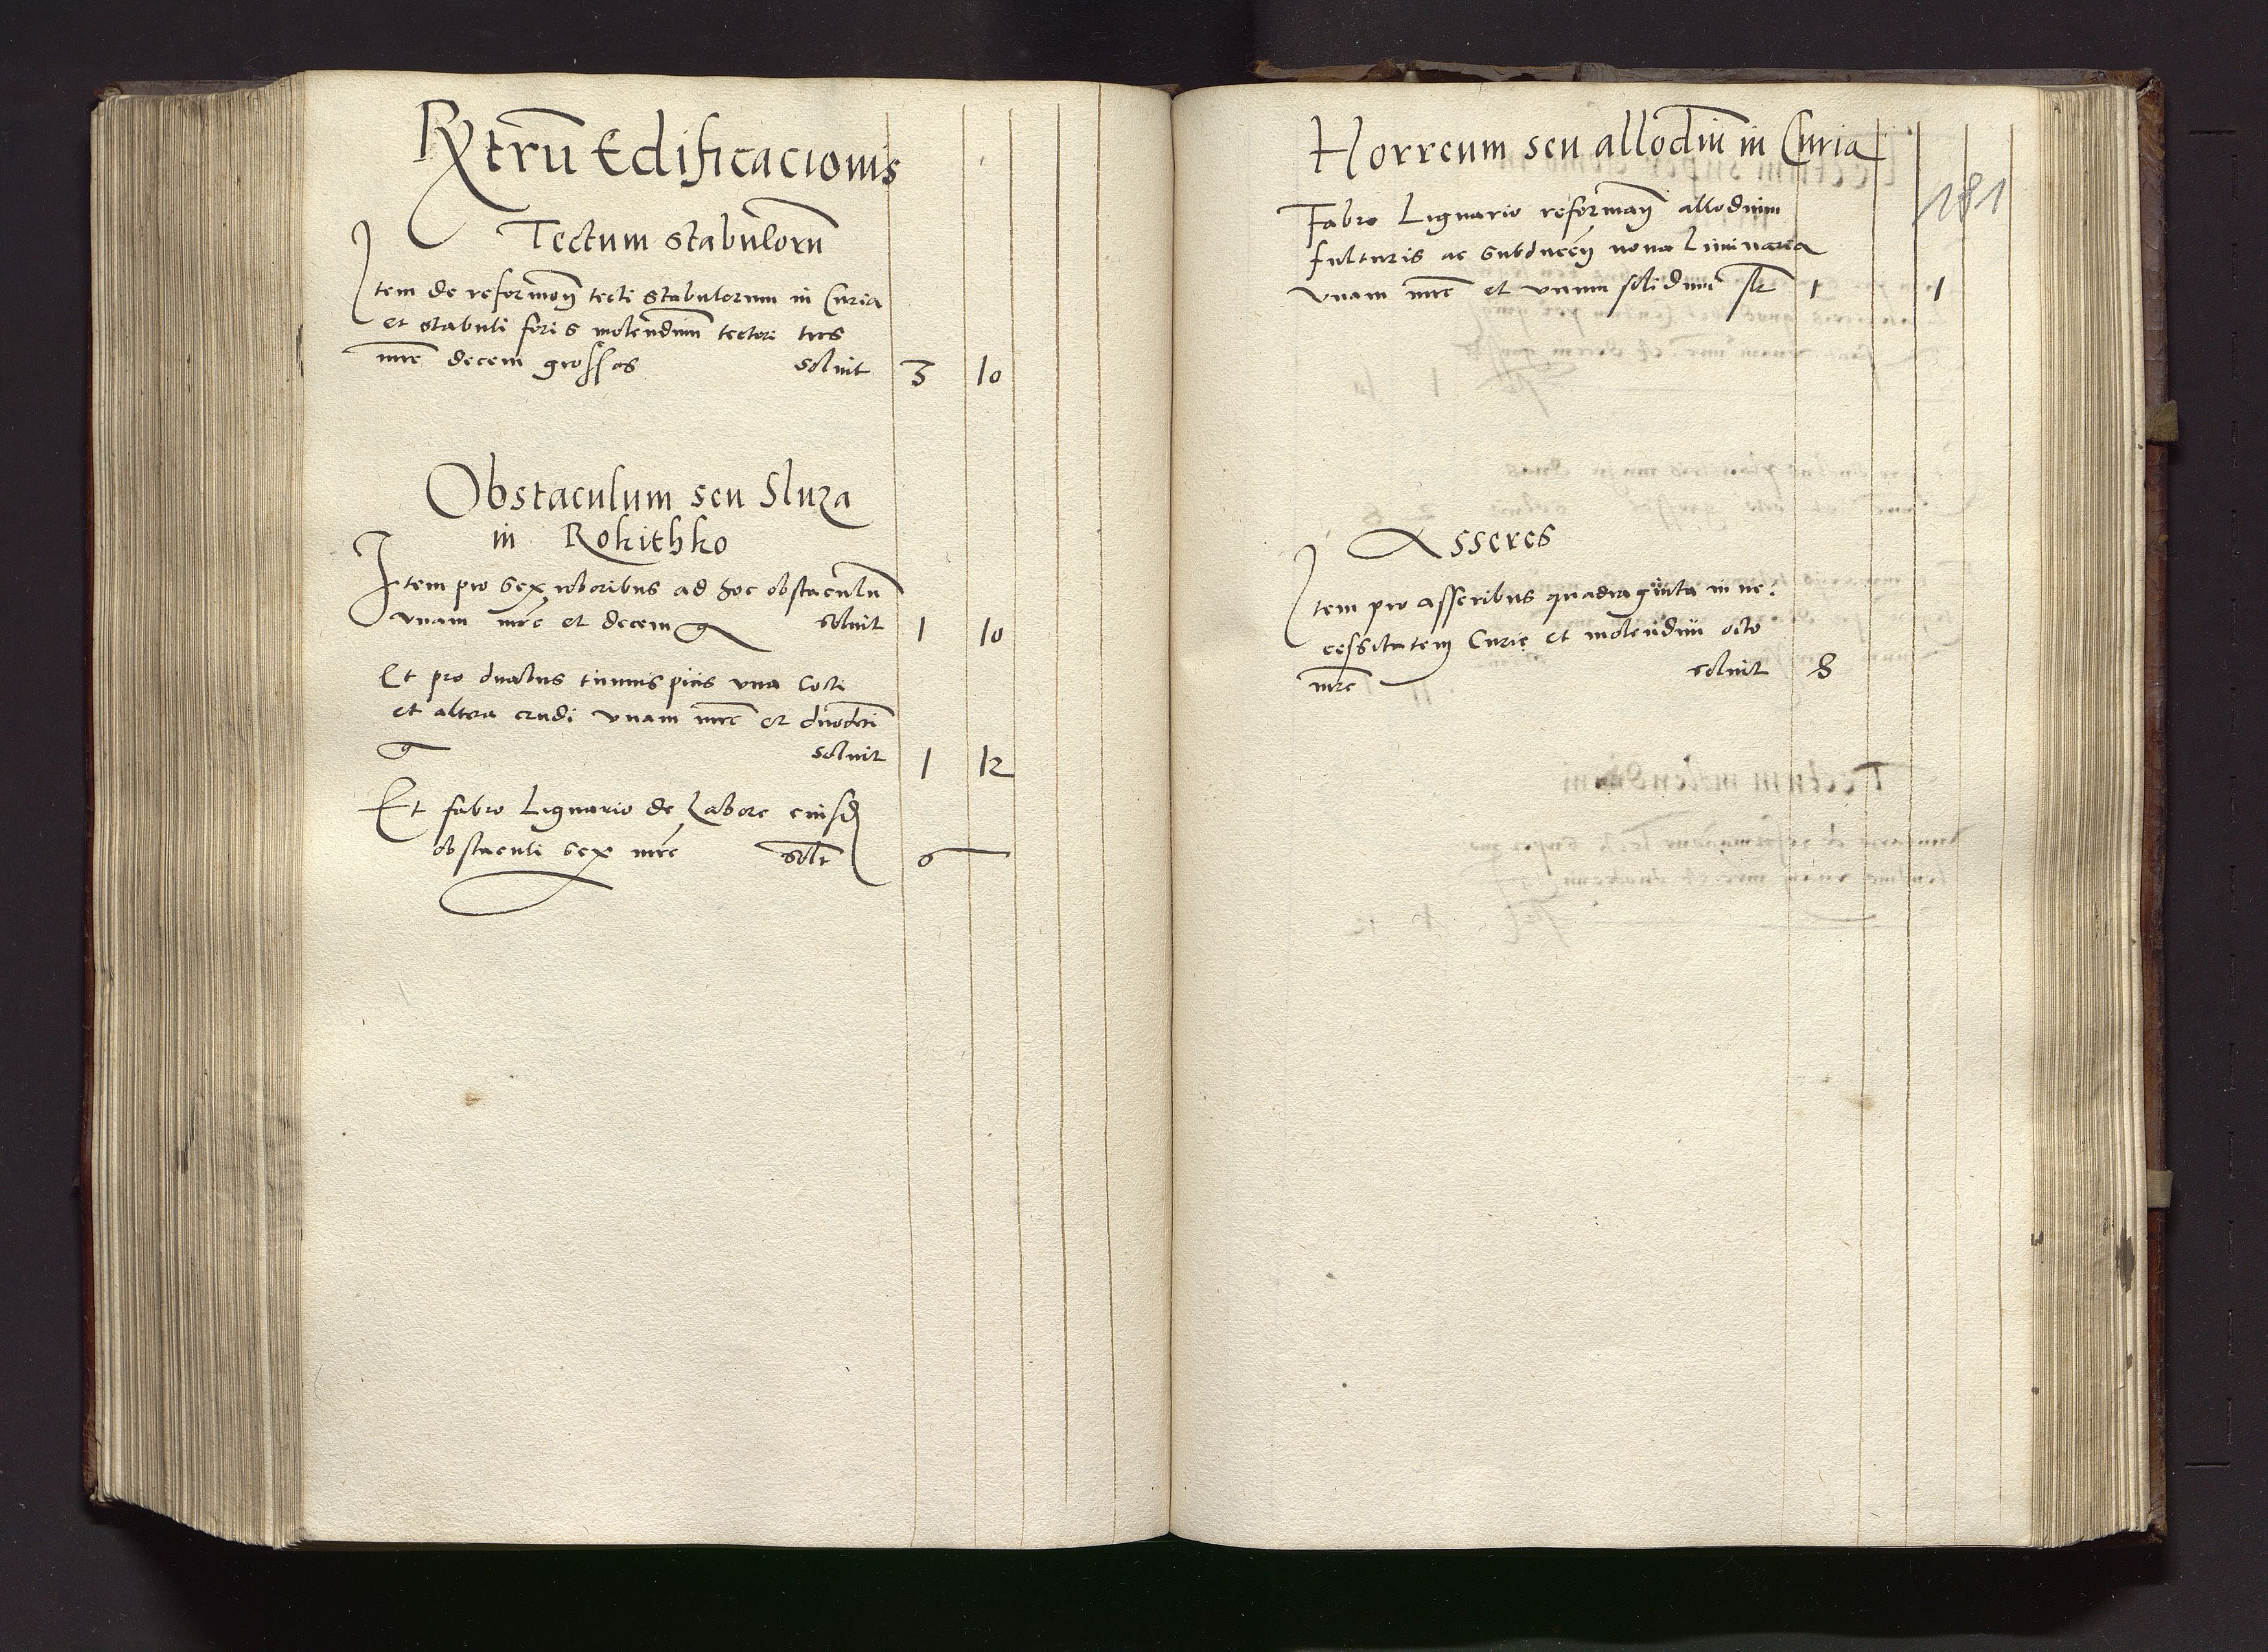 Rxtrū Edificacionis
Tectum stabulorū
Item de reformonȷ tecti stabulorum in Curia
et stabuli foris molendinum tectori tres
mrc decem grossos soluit 3 10
Obstaculum seu Sluza
in Rokithko
Item pro sex roboribus ad hoc obstaculū
vnam mrc et decem g soluit 1 10
Et pro duabus tunnis picis vna cocti
et altera crudi vnam mrc et duodeci
g soluit 1 12
Et fabro Lignario de Labore eiusd
obstaculi sex mrc solt 6
Horreum seu allodiū in Curia
181
Fabro Lignario reformanȷ allodium
fulturis ac subducenȷ noua Liminaria
vnam mrc et vnum solidum slt 1 1
Asseres
Item pro asseribus quadraginta in ne:
cessitatem Curię et molendini octo
mrc soluit 8